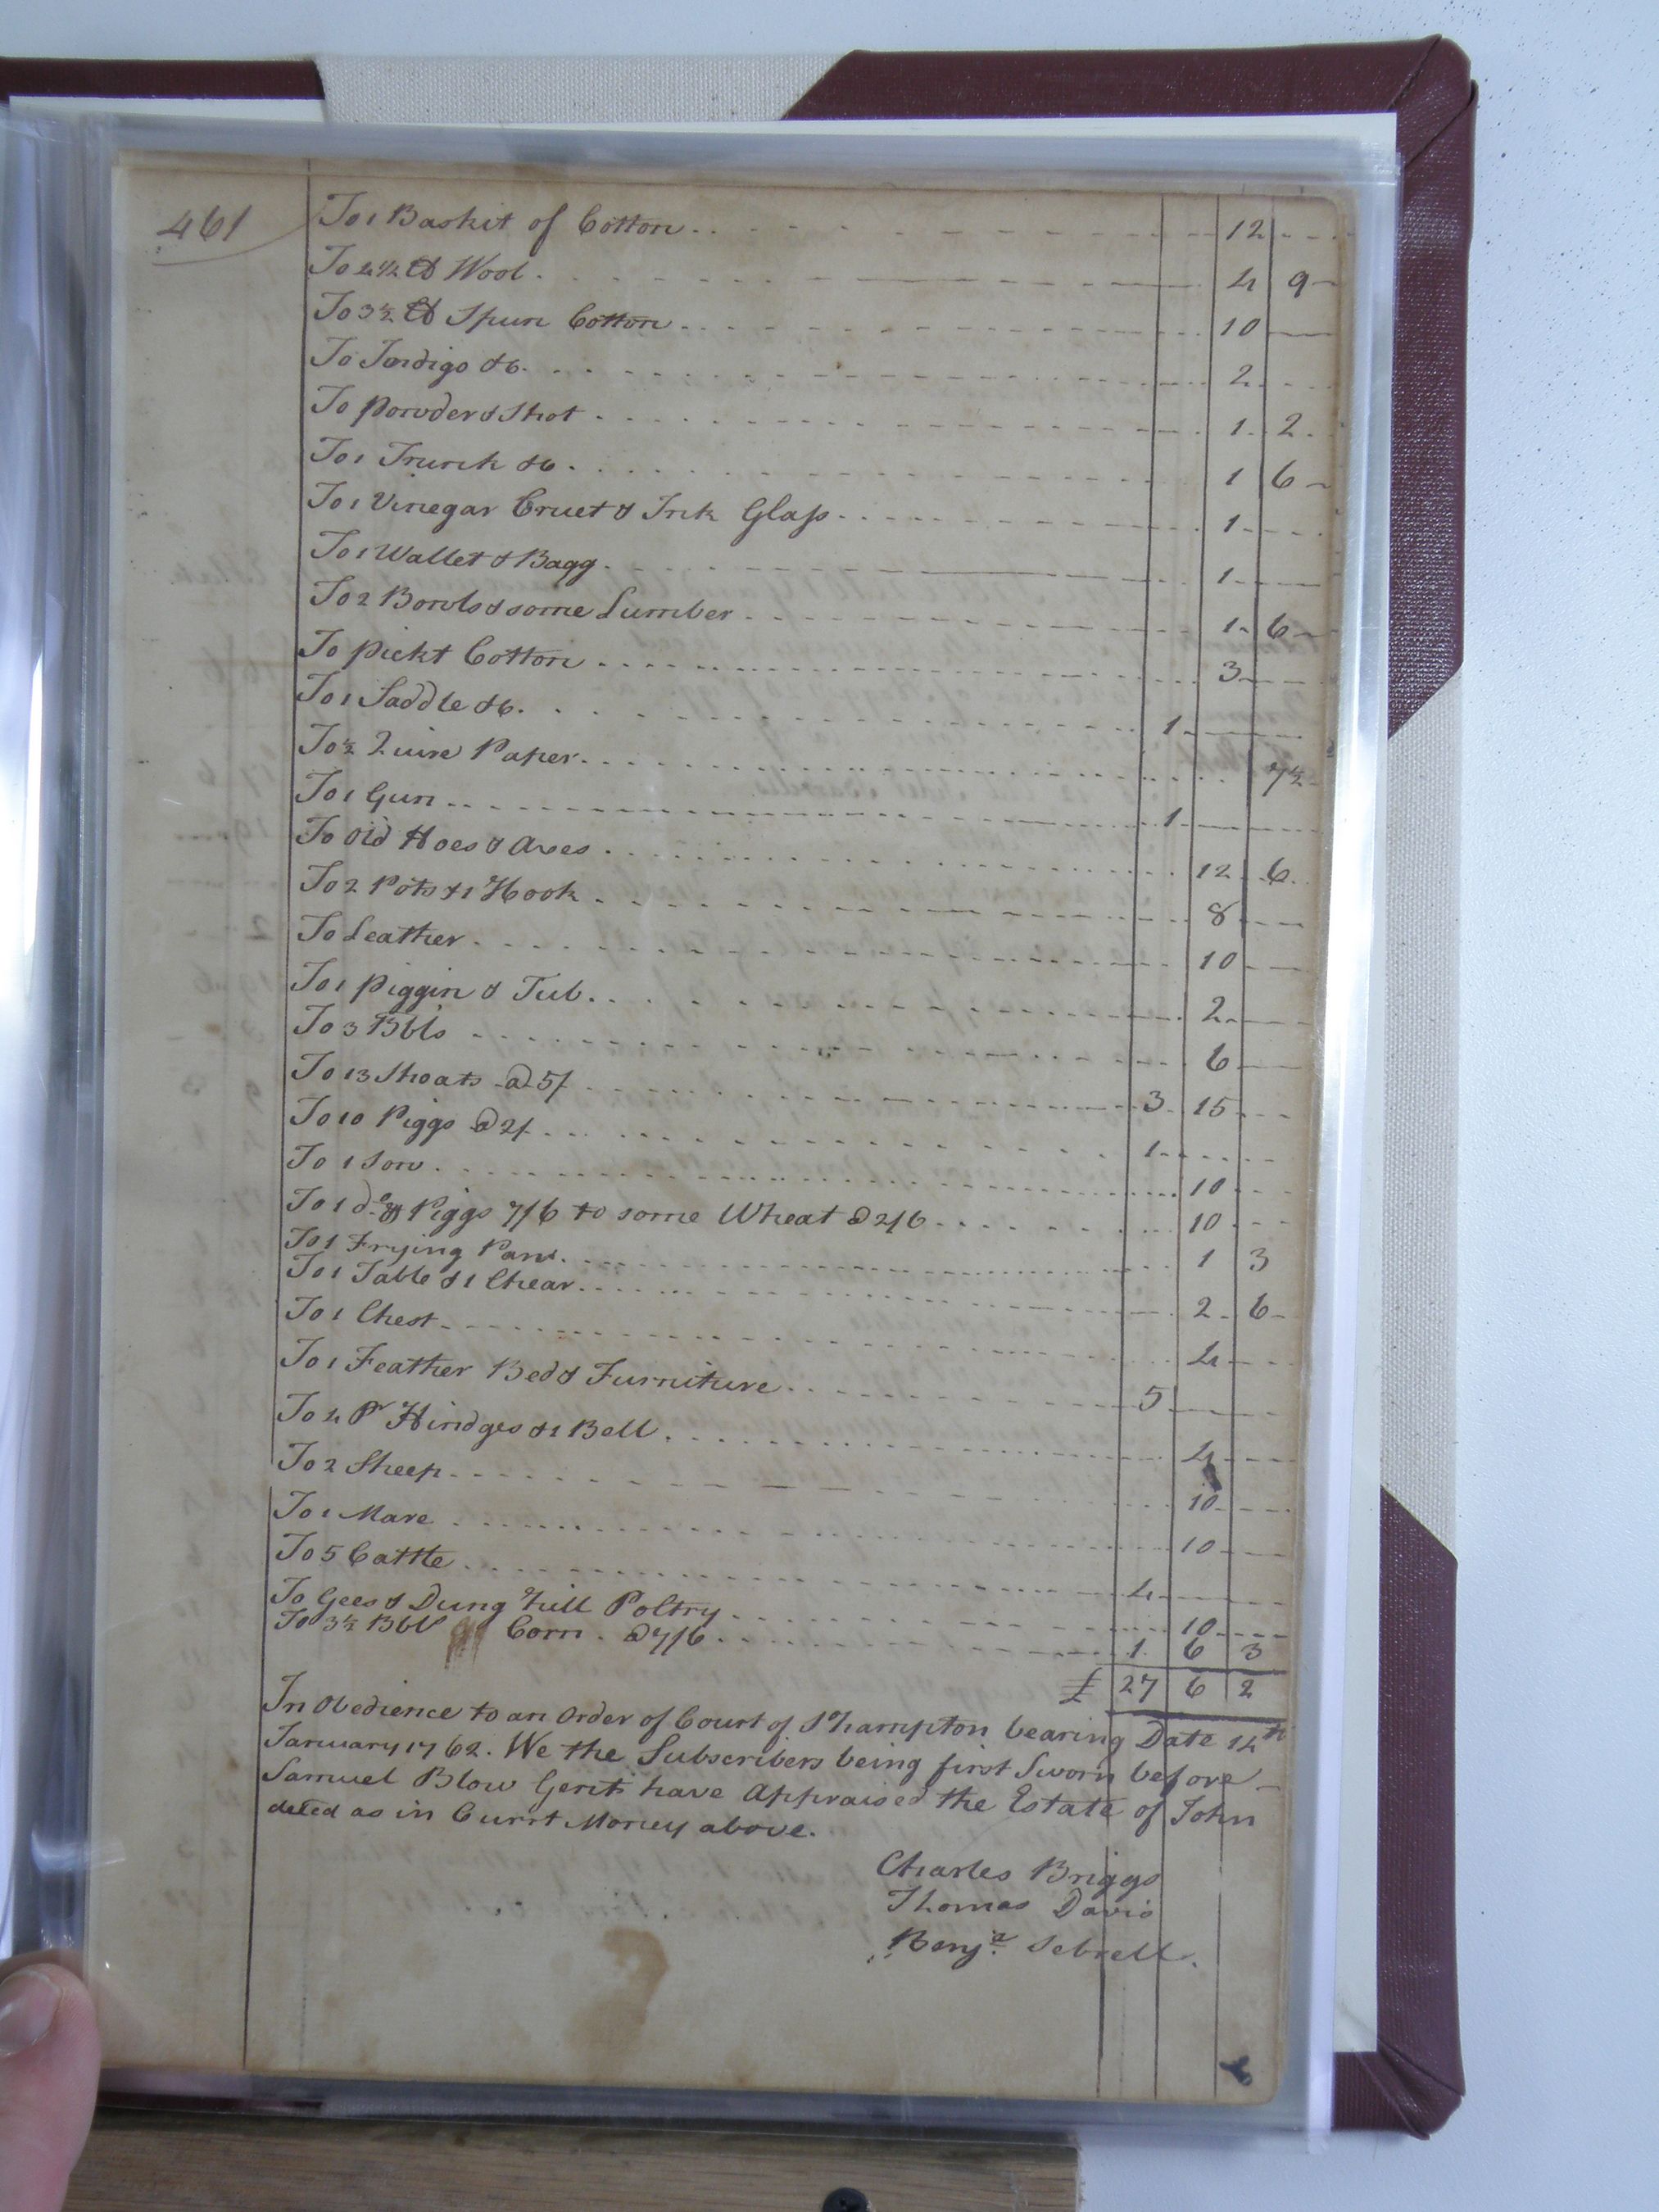 461
To 1 Baskit of Cotton 12
To 4½ lb Wool 4 9
To 3½ lb Spun Cotton 10
To Indigo &c 2
To powder & Shot 1 2
To 1 Trunk &c 1 6
To 1 Vinegar Cruet & Ink Glass 1
To 1 Wallet & Bagg 1
To 2 Bowls & some Lumber 1 6
To pickt Cotton 3
To 1 Saddle &c 1
To ½ Quire Paper 7½
To 1 Gun 1
To old Hoes & Axes 12 6
To 2 Pots & 1 Hook 8
To Leather 10
To 1 piggin & Tub 2
To 3 Bbls 6
To 13 Shoats @ 5/ 3 15
To 10 Piggs @ 2/ 1
To 1 Sow 10
To 1 do & Piggs 7/6 to some Wheat @ 2/6 10
To 1 Frying Pan 1 3
To 1 Table & 1 Chear 2 6
To 1 Chest 4
To 1 Feather Bed & Furniture 5
To 4 Pr Hindges & 1 Bell 4
To 2 Sheep 10
To 1 Mare 10
To 5 Cattle 4
To Gees & Dung hill Poltry 10
To 3½ Bbl Corn @ 7/6 1 6 3
£ 27 6 2
In Obedience to an Order of Court of S'hampton bearing Date 14th
January 1762. We the Subscribers being first Sworn before
Samuel Blow Gent have Appraised the Estate of John
deced as in Currt Money above.
Charles Briggs
Thomas Davis
Benja Sebrell